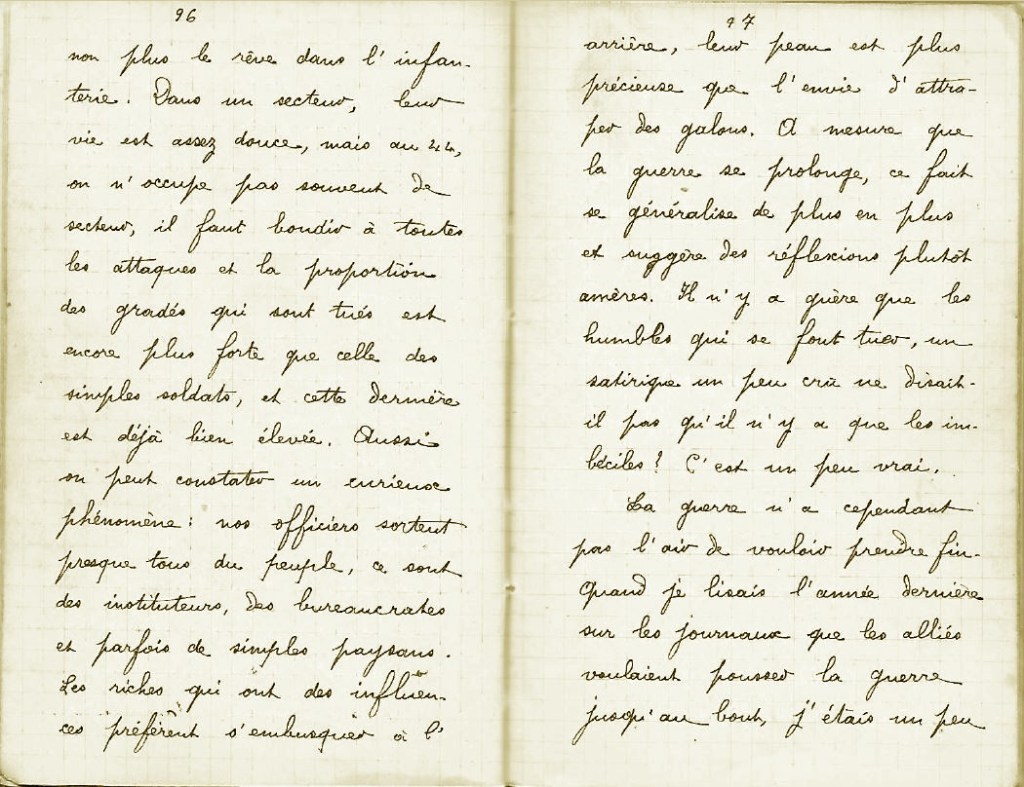 96
non plus le rêve dans l'infan-
terie. Dans un secteur, leur
vie est assez douce, mais au 44,
on n'occupe pas souvent de
secteur, il faut bondir à toutes
les attaques et la proportion
des gradés qui sont tués est
encore plus forte que celle des
simples soldats, et cette dernière
est déjà bien élevée. Aussi
on peut constater un curieux
phénomène : nos officiers sortent
presque tous du peuple, ce sont
des instituteurs, des bureaucrates
et parfois de simples paysans.
Les riches qui ont des influen-
ces préfèrent s'embusquer à l'
97
arrière, leur peau est plus
précieuse que l'envie d'attra-
per des galons. A mesure que
la guerre se prolonge, ce fait
se généralise de plus en plus
et suggère des réflexions plutôt
amères. Il n'y a guère que les
humbles qui se font tuer, un
satirique un peu crû ne disait-
il pas qu'il n'y a que les im-
béciles ! C'est un peu vrai.
La guerre n'a cependant
pas l'air de vouloir prendre fin.
Quand je lisais l'année dernière
sur les journaux que les alliés
voulaient pousser la guerre
jusqu'au bout, j'étais un peu